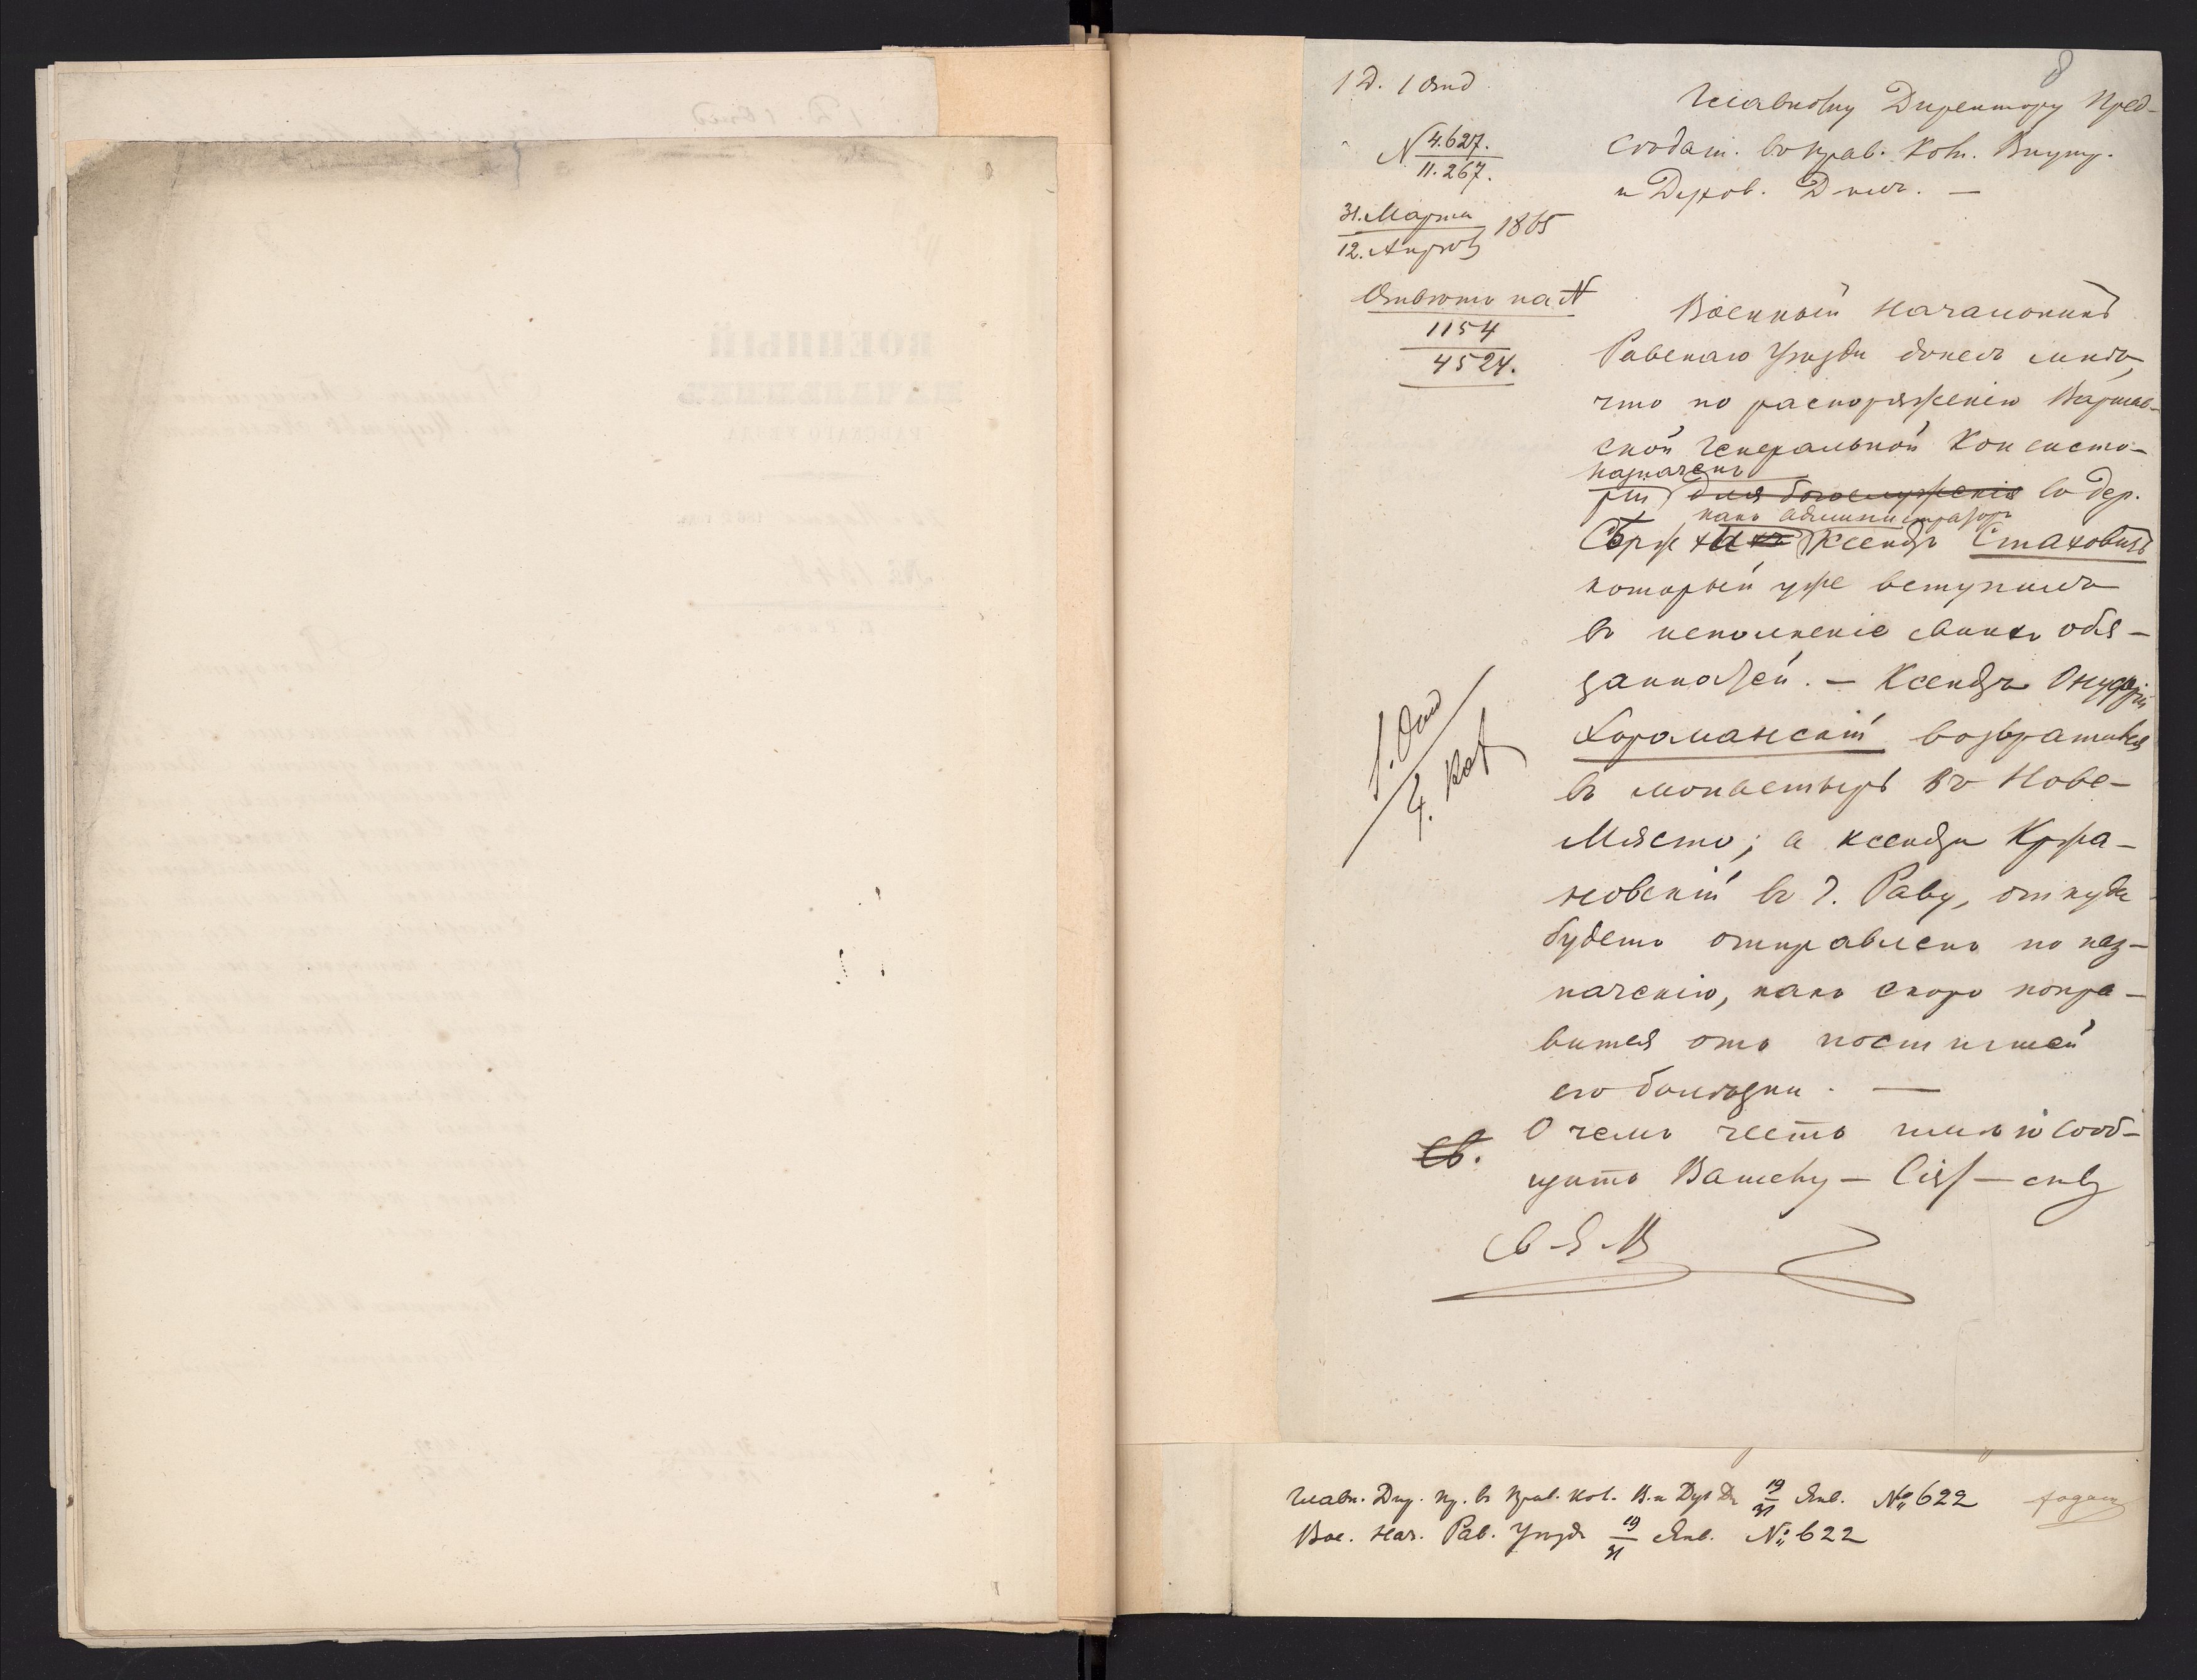 8
1 Д. 1 Отд.
№ 4.627.
11.267.
31. Марта
12. Апрѣл 1865
Отвѣтъ на №
1154
4524.
Главному Директору Пред-
сѣдат. въ Прав. Ком. Внутр.
и Духов. Дѣлъ. —
Военный Начальникъ
Равскаго Уѣзда донесъ мнѣ,
что по распоряженію Варшав-
ской Генеральной Консисто-
назначенъ
ріи для богослуженія въ дер.
какъ администраторъ
Ксендзъ Стаховичъ
который уже вступилъ
въ исполненіе своихъ обя-
занностей. — Ксендзъ Онуфрій
Хороманскій возвратился
въ монастырь въ Нове-
Място; а ксендзъ Кржа-
новскій въ г. Раву, откуда
будетъ отправленъ по наз-
наченію, какъ скоро попра-
вится отъ постигшей
его болѣзни. —
О чемъ честь имѣю сооб-
щить Вашему — Сія — ству
1. Отд
4.
Св.
Главн. Дир. Пр. въ Прав. Ком. В. и Дух Дѣ 19/31 Янв. № 622
Вое. Нач. Рав. Уѣзда 19/31 Янв. № 622
ВОЕННЫЙ
НАЧАЛЬНИКЪ
РАВСКАГО УѢЗДА